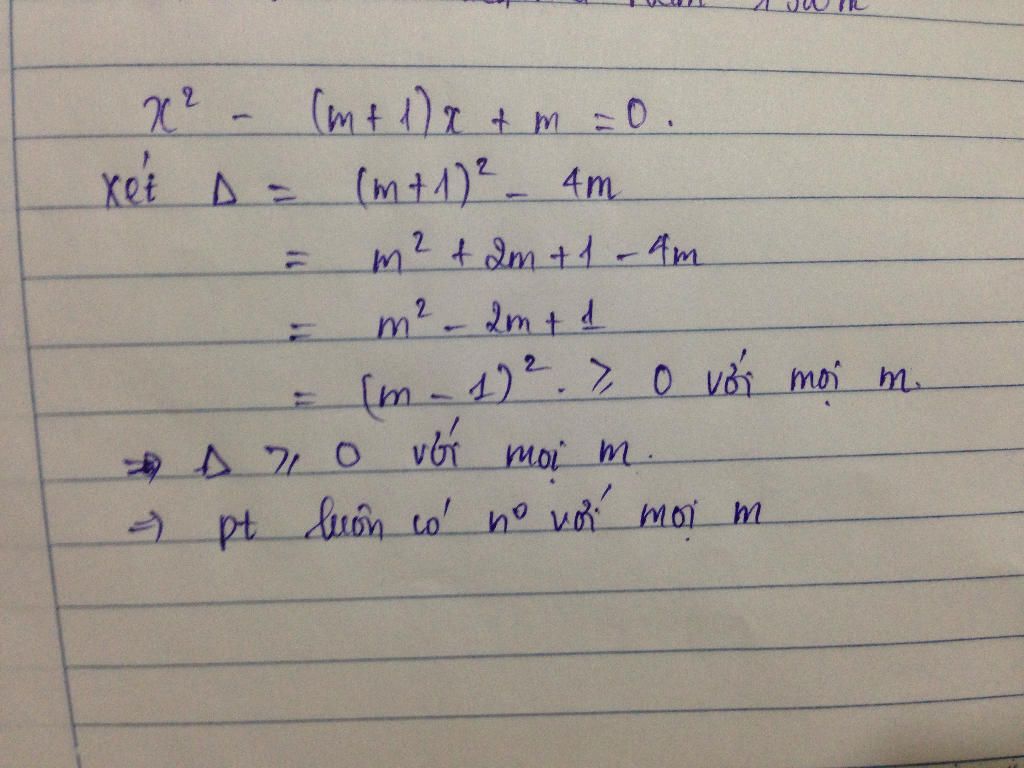 x² - (m+1)x + m = 0.
xét Δ = (m+1)² - 4m
= m² + 2m + 1 - 4m
= m² - 2m + 1
= (m - 1)². ⩾ 0 với mọi m.
⇒ Δ ⩾ 0 với mọi m.
⇒ pt luôn có n⁰ với mọi m